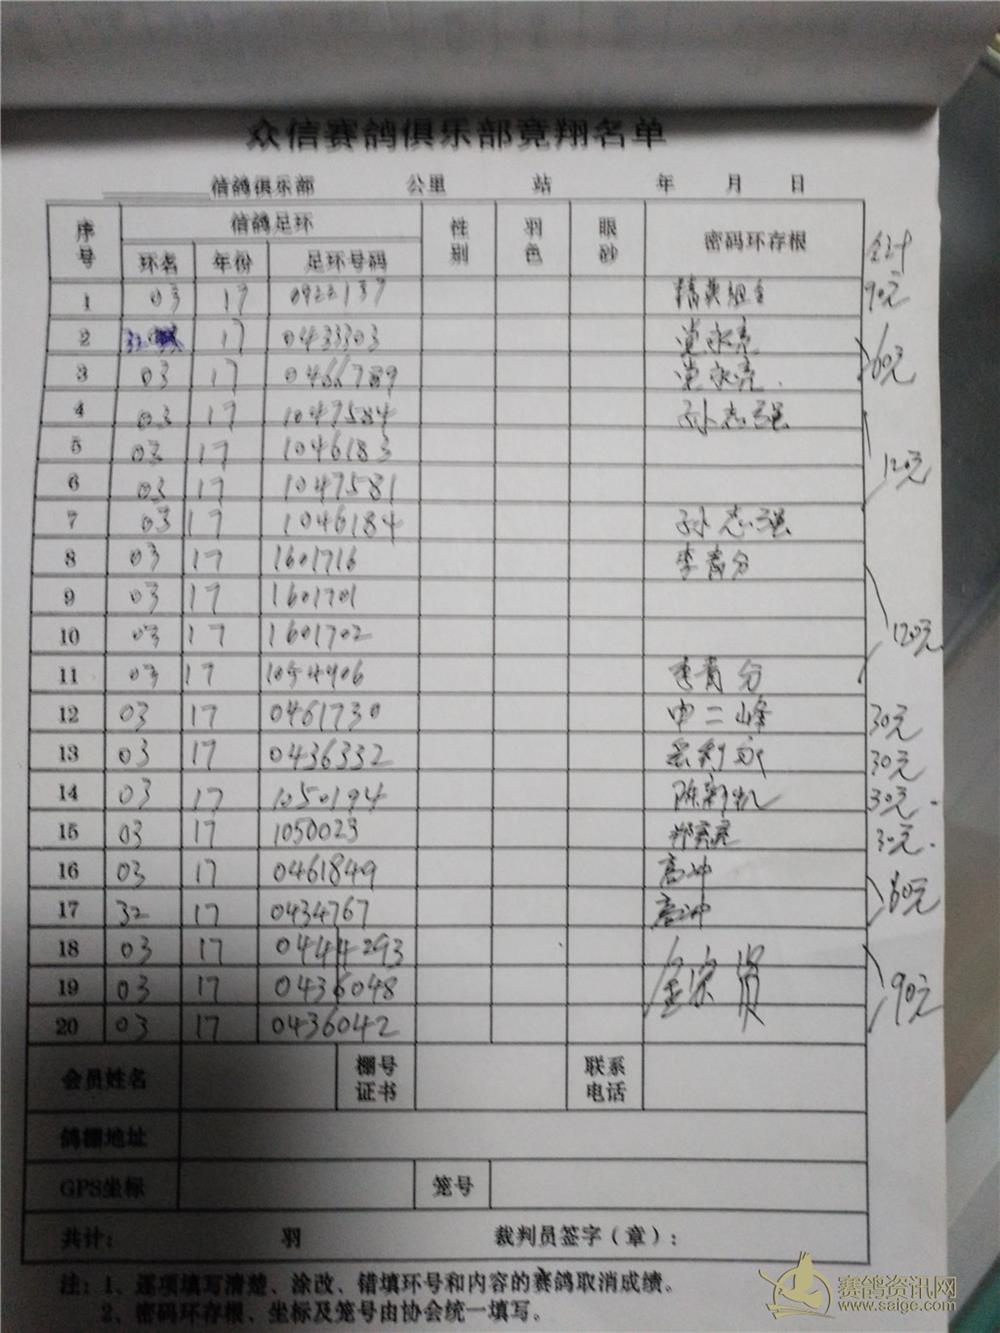 众信赛鸽俱乐部竟翔名单
信鸽俱乐部 公里 站 年 月 日
序号 信鸽足环 性别 羽色 眼砂 密码环存根 合计
环名 年份 足环号码
1 03 17 0922137 精英组合 90元
2 32 17 0433303 党永亮
3 03 17 0466789 党永亮 60元
4 03 17 1047584 孙志强
5 03 17 1046183 120元
6 03 17 1047581
7 03 17 1046184 孙志强
8 03 17 1601716 李青分
9 03 17 1601701
10 03 17 1601702 120元
11 03 17 1054906 李青分
12 03 17 0461730 申二峰 30元
13 03 17 0436332 30元
14 03 17 1050194 陈新 30元
15 03 17 1050023 郑 30元
16 03 17 0461849 高冲
17 32 17 0434767 高冲 60元
18 03 17 0444293
19 03 17 0436048 金宗 90元
20 03 17 0436042
会员姓名 棚号证书 联系电话
鸽棚地址
GPS坐标 笼号
共计: 羽 裁判员签字(章):
注:1、逐项填写清楚、涂改、错填环号和内容的赛鸽取消成绩。
2、密码环存根、坐标及笼号由协会统一填写。
赛鸽资讯网
www.saige.com